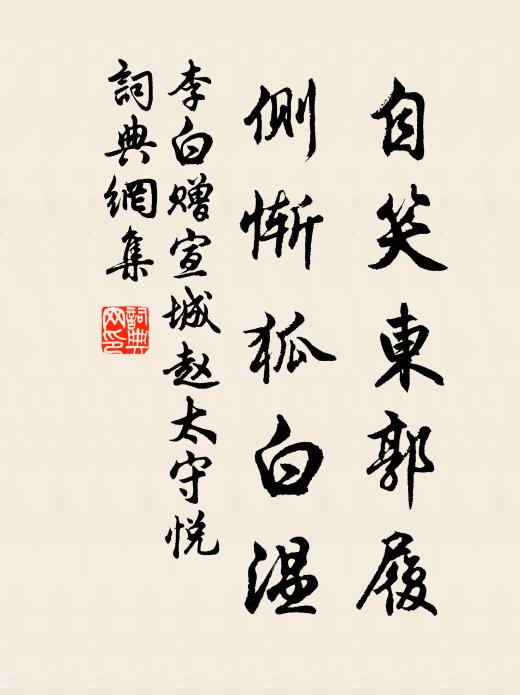 自笑東郭履
側慚狐白温
李白赠宣城赵太守悦
詞典網集
詞典
网印